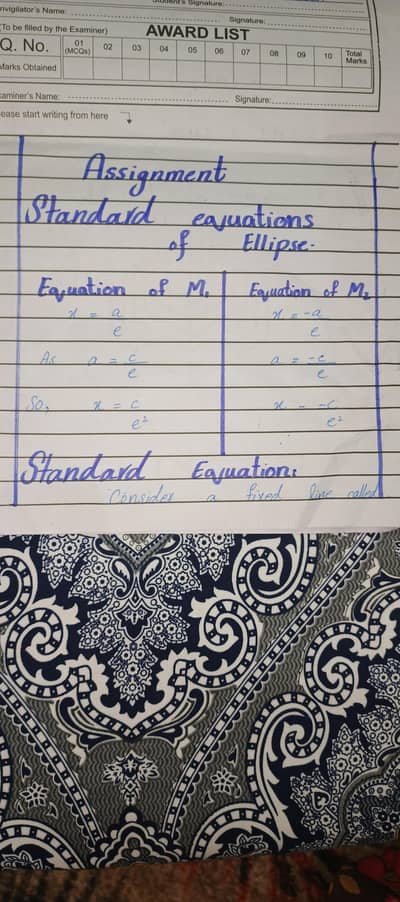 Student's Signature:
Invigilator's Name:
Signature:
(To be filled by the Examiner) AWARD LIST
Q. No. 01 (MCQs) 02 03 04 05 06 07 08 09 10 Total Marks
Marks Obtained
Examiner's Name: Signature:
ease start writing from here
Assignment
Standard equations
of Ellipse.
Equation of M₁ Equation of M₂
x = a/e x = -a/e
As a = c/e a = -c/e
So, x = c/e² x = -c/e²
Standard Equation:
Consider a fixed line called